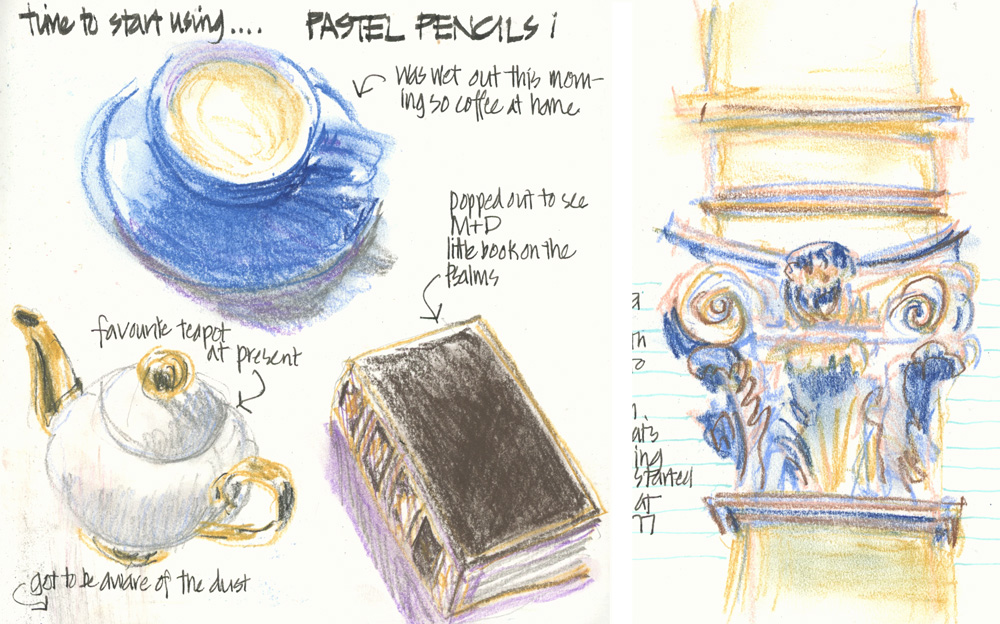 time to start using....
PASTEL PENCILS!
was wet out this morn-
ing so coffee at home
popped out to see
M+D
little book on the
Psalms
favourite teapot
at present
got to be aware of the dust
at's
ing
started
at